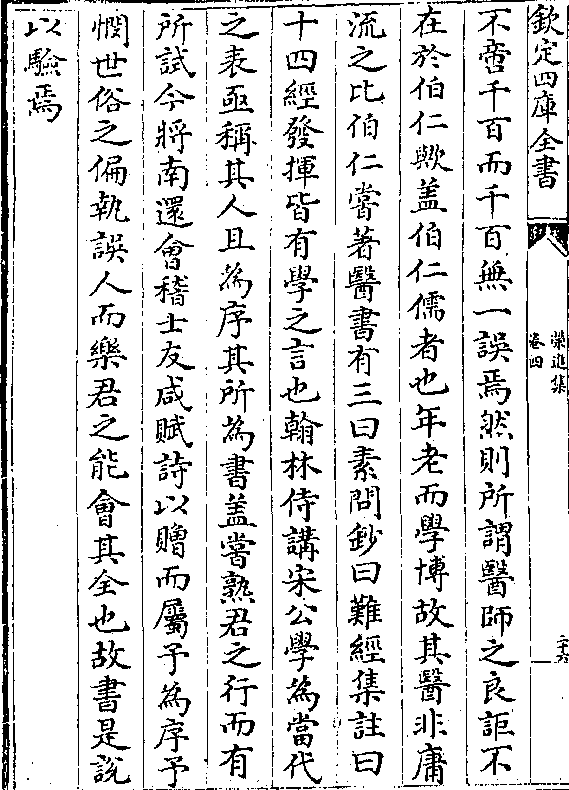 欽定四庫全書
榮進集
卷四
二十六
不啻千百而千百無一誤焉然則所謂醫師之良詎不
在於伯仁歟盖伯仁儒者也年老而學博故其醫非庸
流之比伯仁嘗著醫書有三曰素問鈔曰難經集註曰
十四經發揮皆有學之言也翰林侍講宋公學為當代
之表亟稱其人且為序其所為書盖嘗熟君之行而有
所試今將南還會稽士友咸賦詩以贈而屬予為序予
憫世俗之偏執誤人而樂君之能會其全也故書是說
以驗焉